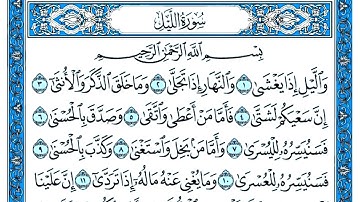 سُورَةُ اللَّيْلِ
بِسْمِ اللَّهِ الرَّحْمَٰنِ الرَّحِيمِ
وَاللَّيْلِ إِذَا يَغْشَىٰ ١ وَالنَّهَارِ إِذَا تَجَلَّىٰ ٢ وَمَا خَلَقَ الذَّكَرَ وَالْأُنثَىٰ ٣
إِنَّ سَعْيَكُمْ لَشَتَّىٰ ٤ فَأَمَّا مَنْ أَعْطَىٰ وَاتَّقَىٰ ٥ وَصَدَّقَ بِالْحُسْنَىٰ ٦
فَسَنُيَسِّرُهُ لِلْيُسْرَىٰ ٧ وَأَمَّا مَن بَخِلَ وَاسْتَغْنَىٰ ٨ وَكَذَّبَ بِالْحُسْنَىٰ ٩
فَسَنُيَسِّرُهُ لِلْعُسْرَىٰ ١٠ وَمَا يُغْنِي عَنْهُ مَالُهُ إِذَا تَرَدَّىٰ ١١ إِنَّ عَلَيْنَا